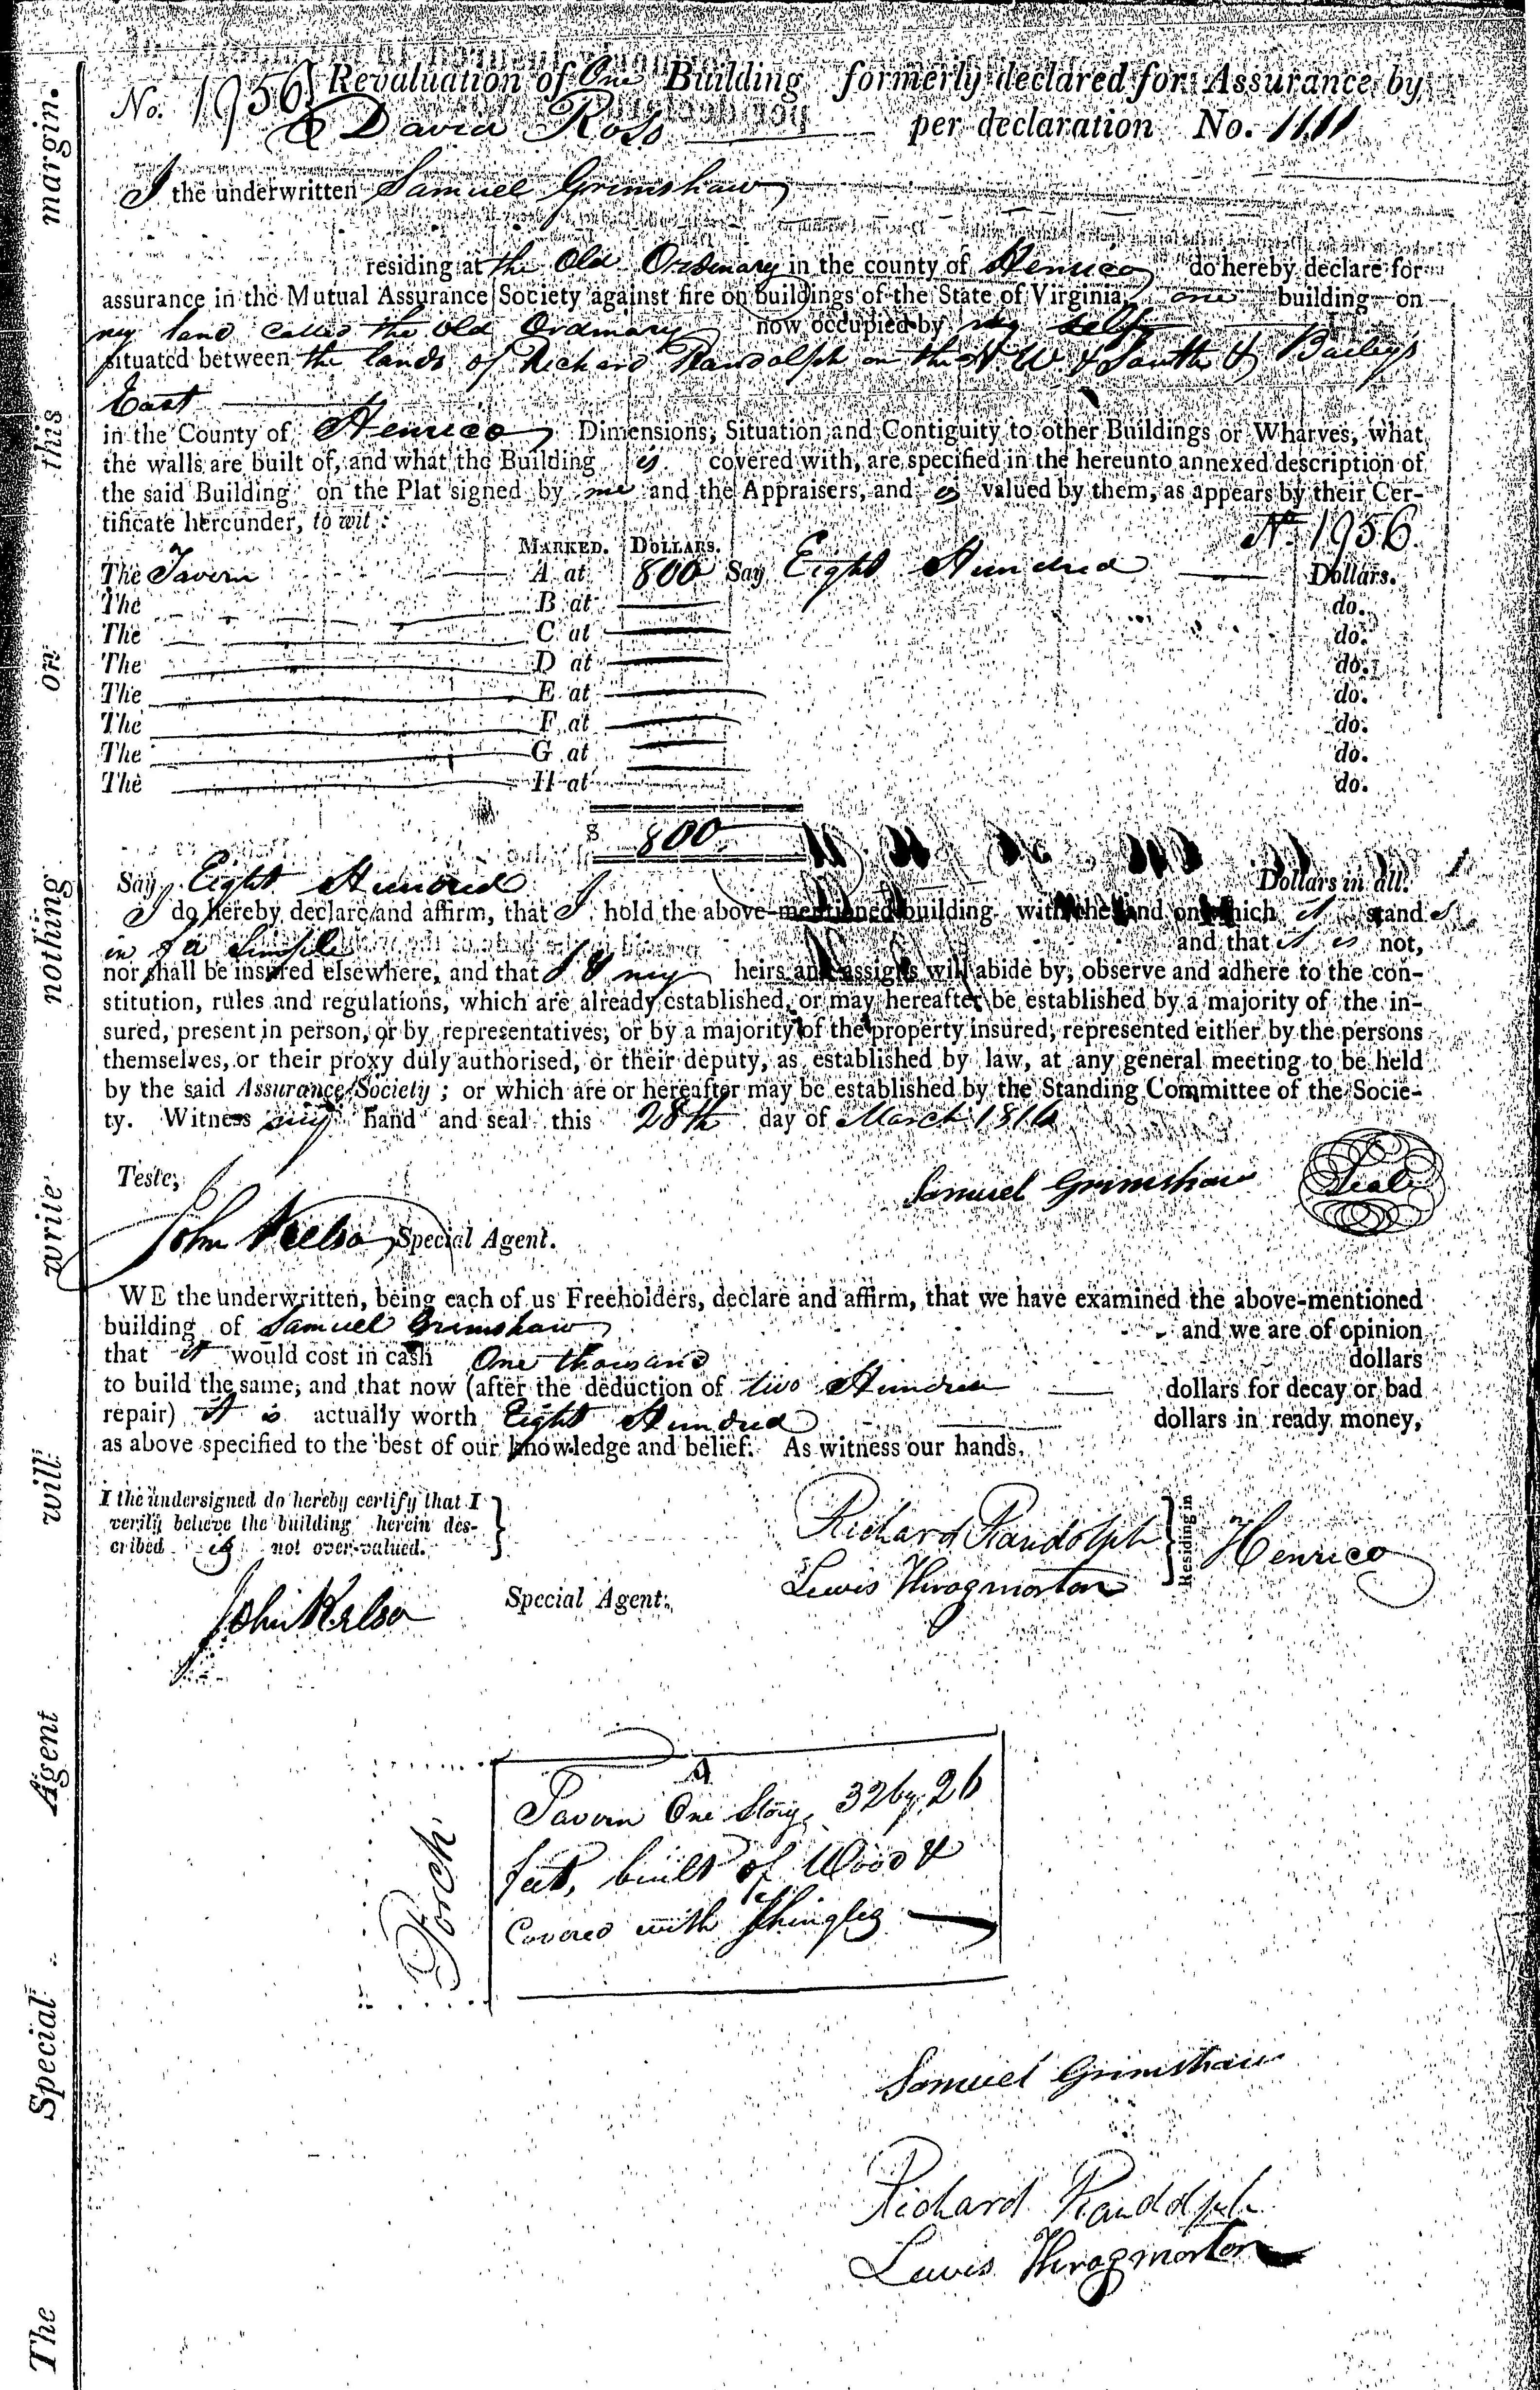 No. 1956 } Revaluation of One Building formerly declared for Assurance by
David Ross per declaration No. 1111
I the underwritten Samuel Grimshaw
residing at the Old Ordinary in the county of Henrico do hereby declare for
assurance in the Mutual Assurance Society against fire on buildings of the State of Virginia, one building on
my land called the Old Ordinary now occupied by my self
situated between the lands of Richard Randolph on the N. W. & South & Baileys
East
in the County of Henrico Dimensions, Situation and Contiguity to other Buildings or Wharves, what
the walls are built of, and what the Building is covered with, are specified in the hereunto annexed description of
the said Building on the Plat signed by me and the Appraisers, and is valued by them, as appears by their Cer-
tificate hereunder, to wit:
No. 1956.
MARKED. DOLLARS.
The Tavern A at 800 Say Eight Hundred Dollars.
The B at do.
The C at do.
The D at do.
The E at do.
The F at do.
The G at do.
The H at do.
$ 800
Say Eight Hundred Dollars in all.
I do hereby declare and affirm, that I hold the above-mentioned building with the land on which it stands
in fee simple and that it is not,
nor shall be insured elsewhere, and that I & my heirs and assigns will abide by, observe and adhere to the con-
stitution, rules and regulations, which are already established, or may hereafter be established by a majority of the in-
sured, present in person, or by representatives; or by a majority of the property insured, represented either by the persons
themselves, or their proxy duly authorised, or their deputy, as established by law, at any general meeting to be held
by the said Assurance Society; or which are or hereafter may be established by the Standing Committee of the Socie-
ty. Witness my hand and seal this 28th day of March 1816
Teste,
Samuel Grimshaw Seal
John Kelso Special Agent.
WE the underwritten, being each of us Freeholders, declare and affirm, that we have examined the above-mentioned
building of Samuel Grimshaw and we are of opinion
that it would cost in cash One thousand dollars
to build the same, and that now (after the deduction of two Hundred dollars for decay or bad
repair) it is actually worth Eight Hundred dollars in ready money,
as above specified to the best of our knowledge and belief. As witness our hands,
I the undersigned do hereby certify that I
verily believe the building herein des-
cribed is not over-valued.
John Kelso Special Agent.
Richard Randolph
Lewis Throgmorton
Residing in Henrico
A
Tavern One Story, 32 by 26
feet, built of Wood &
Covered with Shingles
Porch
Samuel Grimshaw
Richard Randolph
Lewis Throgmorton
The Special Agent will write nothing on this margin.